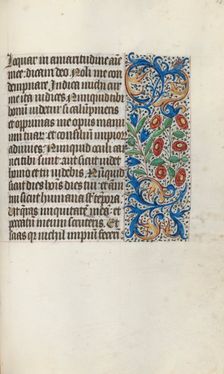 Loquar in amaritudine aīe
mee. dicam deo. Noli me con
dempnare. Indica michi cur
me ita iudices. Nunquid tibi
bonum videtur si calūpnieris
et opprimas me opus manu
um tuar et consilium impior
adiuves. Nunquid oculi car
nei tibi sunt aut sicut videt
homo et tu videbis. Nunquid
sicut dies hōis dies tui et anni
tui sicut humana sūt tēpora
ut queras iniquitatē meā et
peccatum meum scruteris. Et
scias qr nichil impiū fecerī